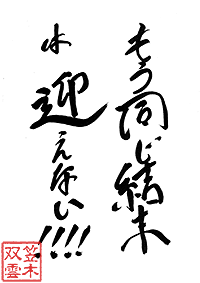 もう同じ結末
は迎えない!!!!
笠木
双雲